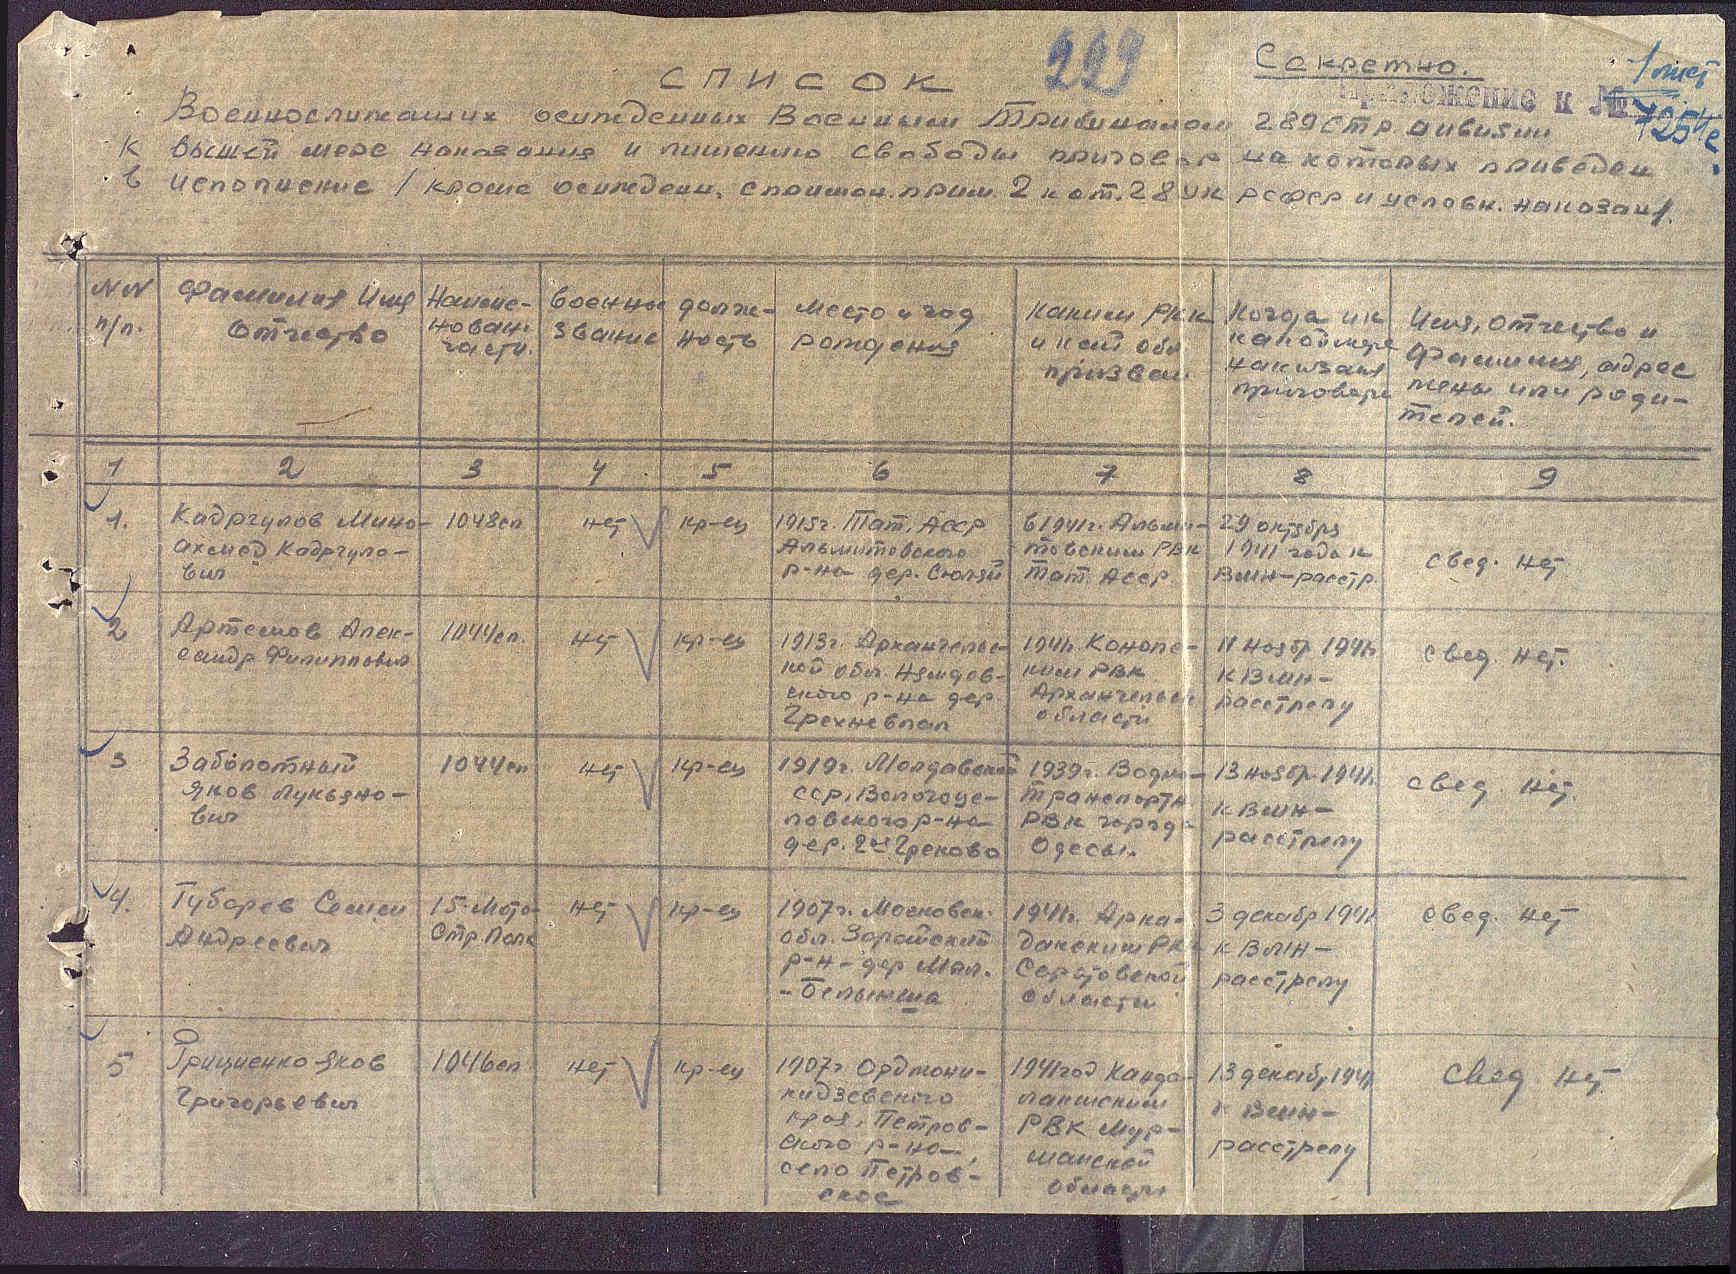 229
Секретно.
1 лист
Приложение к №
7254с
СПИСОК
Военнослужащих осужденных Военным Трибуналом 289 стр. дивизии
к высшей мере наказания и лишению свободы приговор на которых приведен
в исполнение / кроме осужденн. с приmен. прим. 2 к ст. 28 УК РСФСР и условн. наказан/.
NN
п/п.
Фамилия Имя
Отчество
Наиме-
нован.
части.
Военное
звание
Долж-
ность
Место и год
рождения
Каким РВК
и кой обл
призван
Когда и к
какой мере
наказания
приговорен
Имя, отчество и
фамилия, адрес
жены или роди-
телей.
1 2 3 4 5 6 7 8 9
1.
Кадргулов Мина-
ахмед Кадргуло-
вич
1048сп
нет
кр-ец
1915г. Тат. АССР
Альмитовского
р-на дер. Сюлзи
В 1941г. Альми-
товским РВК
Тат. АССР
29 октября
1941 года к
ВМН-расстр.
свед. нет
2
Артемов Алек-
сандр Филиппович
1044сп.
нет
кр-ец
1913г. Архангельс-
кой обл. Няндов-
ского р-на дер.
1941г. Коноше-
ким РВК
Архангельск
области
11 ноябр 1941г.
к ВМН-
расстрелу
свед. нет.
3
Заболотный
Яков Лукьяно-
вич
1044сп
нет
кр-ец
1919г. Молдавской
ССР, Вологоце-
ловского р-на
дер. 2ая Греково
1939г. Водно-
транспортн.
РВК города
Одесы.
13 ноябр. 1941г.
к ВМН-
расстрелу
свед. нет.
4.
Губарев Семен
Андреевич
15 Мото-
Стр. Полк
нет
кр-ец
1907г. Московск.
обл. Зарайский
р-н-дер Мал.
-Белыниша
1941г. Арка-
дакским РВК
Саратовской
области
3 декабр 1941г
к ВМН-
расстрелу
свед. нет
5
Гриценко Яков
Григорьевич
1046сп
нет
кр-ец
1907г Орджони-
кидзевского
края, Петров-
ского р-на,
село Петров-
ское
1941год Канда-
лакшским
РВК Мур-
манской
области
13 декабр 1941г
к ВМН-
расстрелу
свед нет